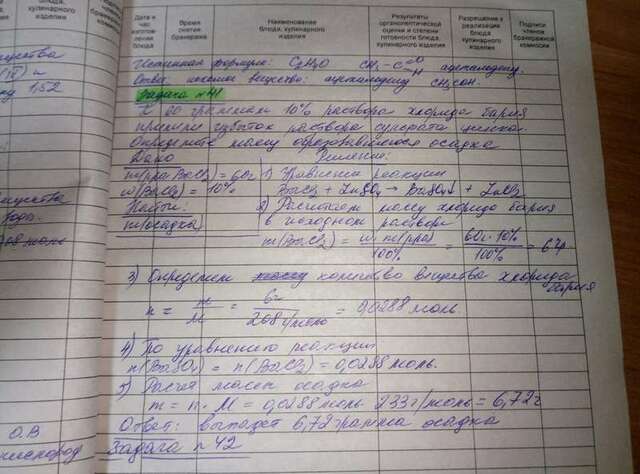 Дата и час изготовления блюда
Время снятия бракеража
Наименование блюда, кулинарного изделия
Результаты органолептической оценки и степени готовности блюда, кулинарного изделия
Разрешение к реализации блюда, кулинарного изделия
Подписи членов бракеражной комиссии
формула: C2H4O CH3-C=O H ацетальдегид.
Ответ: искомое вещество: ацетальдегид CH3COH.
Задача №41
К 60 граммам 10% раствора хлорида бария
прилили избыток раствора сульфата цинка.
Определите массу образовавшегося осадка
Дано Решение:
m(р-ра BaCl2) = 60г 1) Уравнение реакции
w(BaCl2) = 10% BaCl2 + ZnSO4 → BaSO4↓ + ZnCl2
Найти: 2) Рассчитаем массу хлорида бария
m(осадка) в исходном растворе
m(BaCl2) = w·m(р-ра)/100% = 60г·10%/100% = 6г
3) Определяем количество вещества хлорида
бария
n = m/M = 6г/208 г/моль = 0,0288 моль.
4) По уравнению реакции
n(BaSO4) = n(BaCl2) = 0,0288 моль.
5) Расчет массы осадка
m = n·M = 0,0288 моль·233 г/моль = 6,72г
Ответ: выпадет 6,72 грамма осадка
Задача №42
вещества
(IV) и
1,52
вещества
моль
О.В
кислород